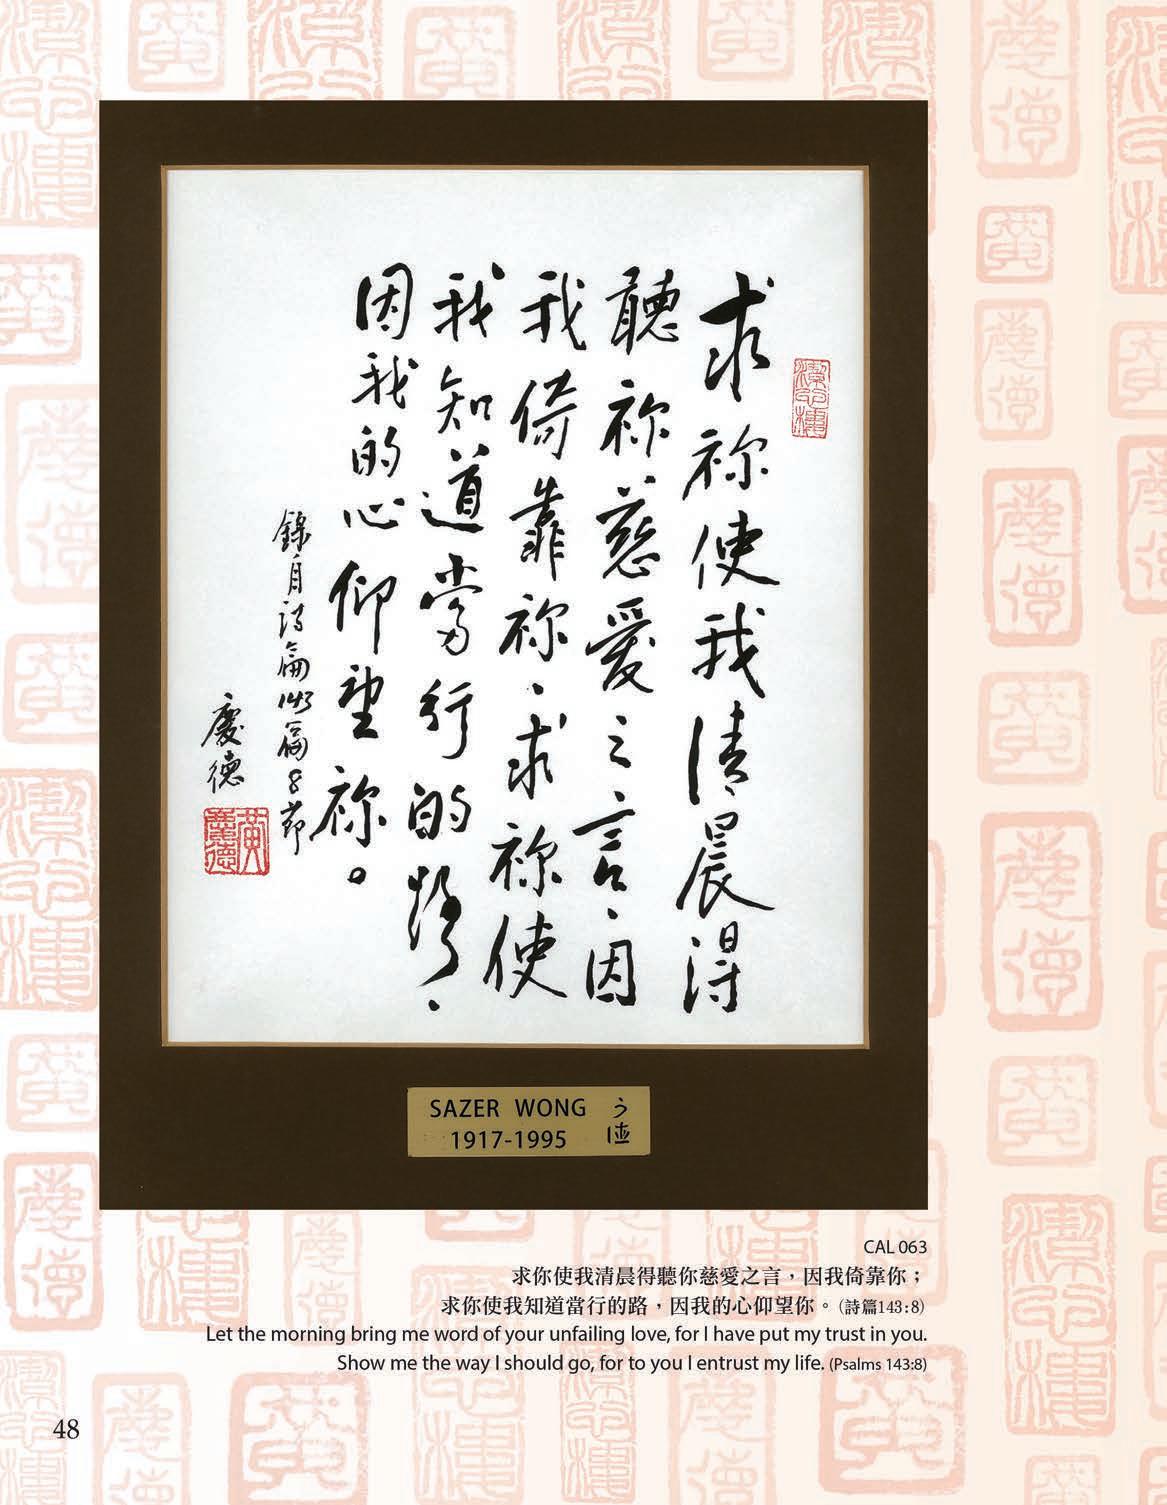 求祢使我清晨得
聽祢慈愛之言、因
我倚靠祢、求祢使
我知道當行的路、
因我的心仰望祢。
錄自詩篇143篇8節
慶德
黃慶德
SAZER WONG
1917-1995
CAL 063
求你使我清晨得聽你慈愛之言，因我倚靠你；
求你使我知道當行的路，因我的心仰望你。（詩篇143:8）
Let the morning bring me word of your unfailing love, for I have put my trust in you.
Show me the way I should go, for to you I entrust my life. (Psalms 143:8)
48